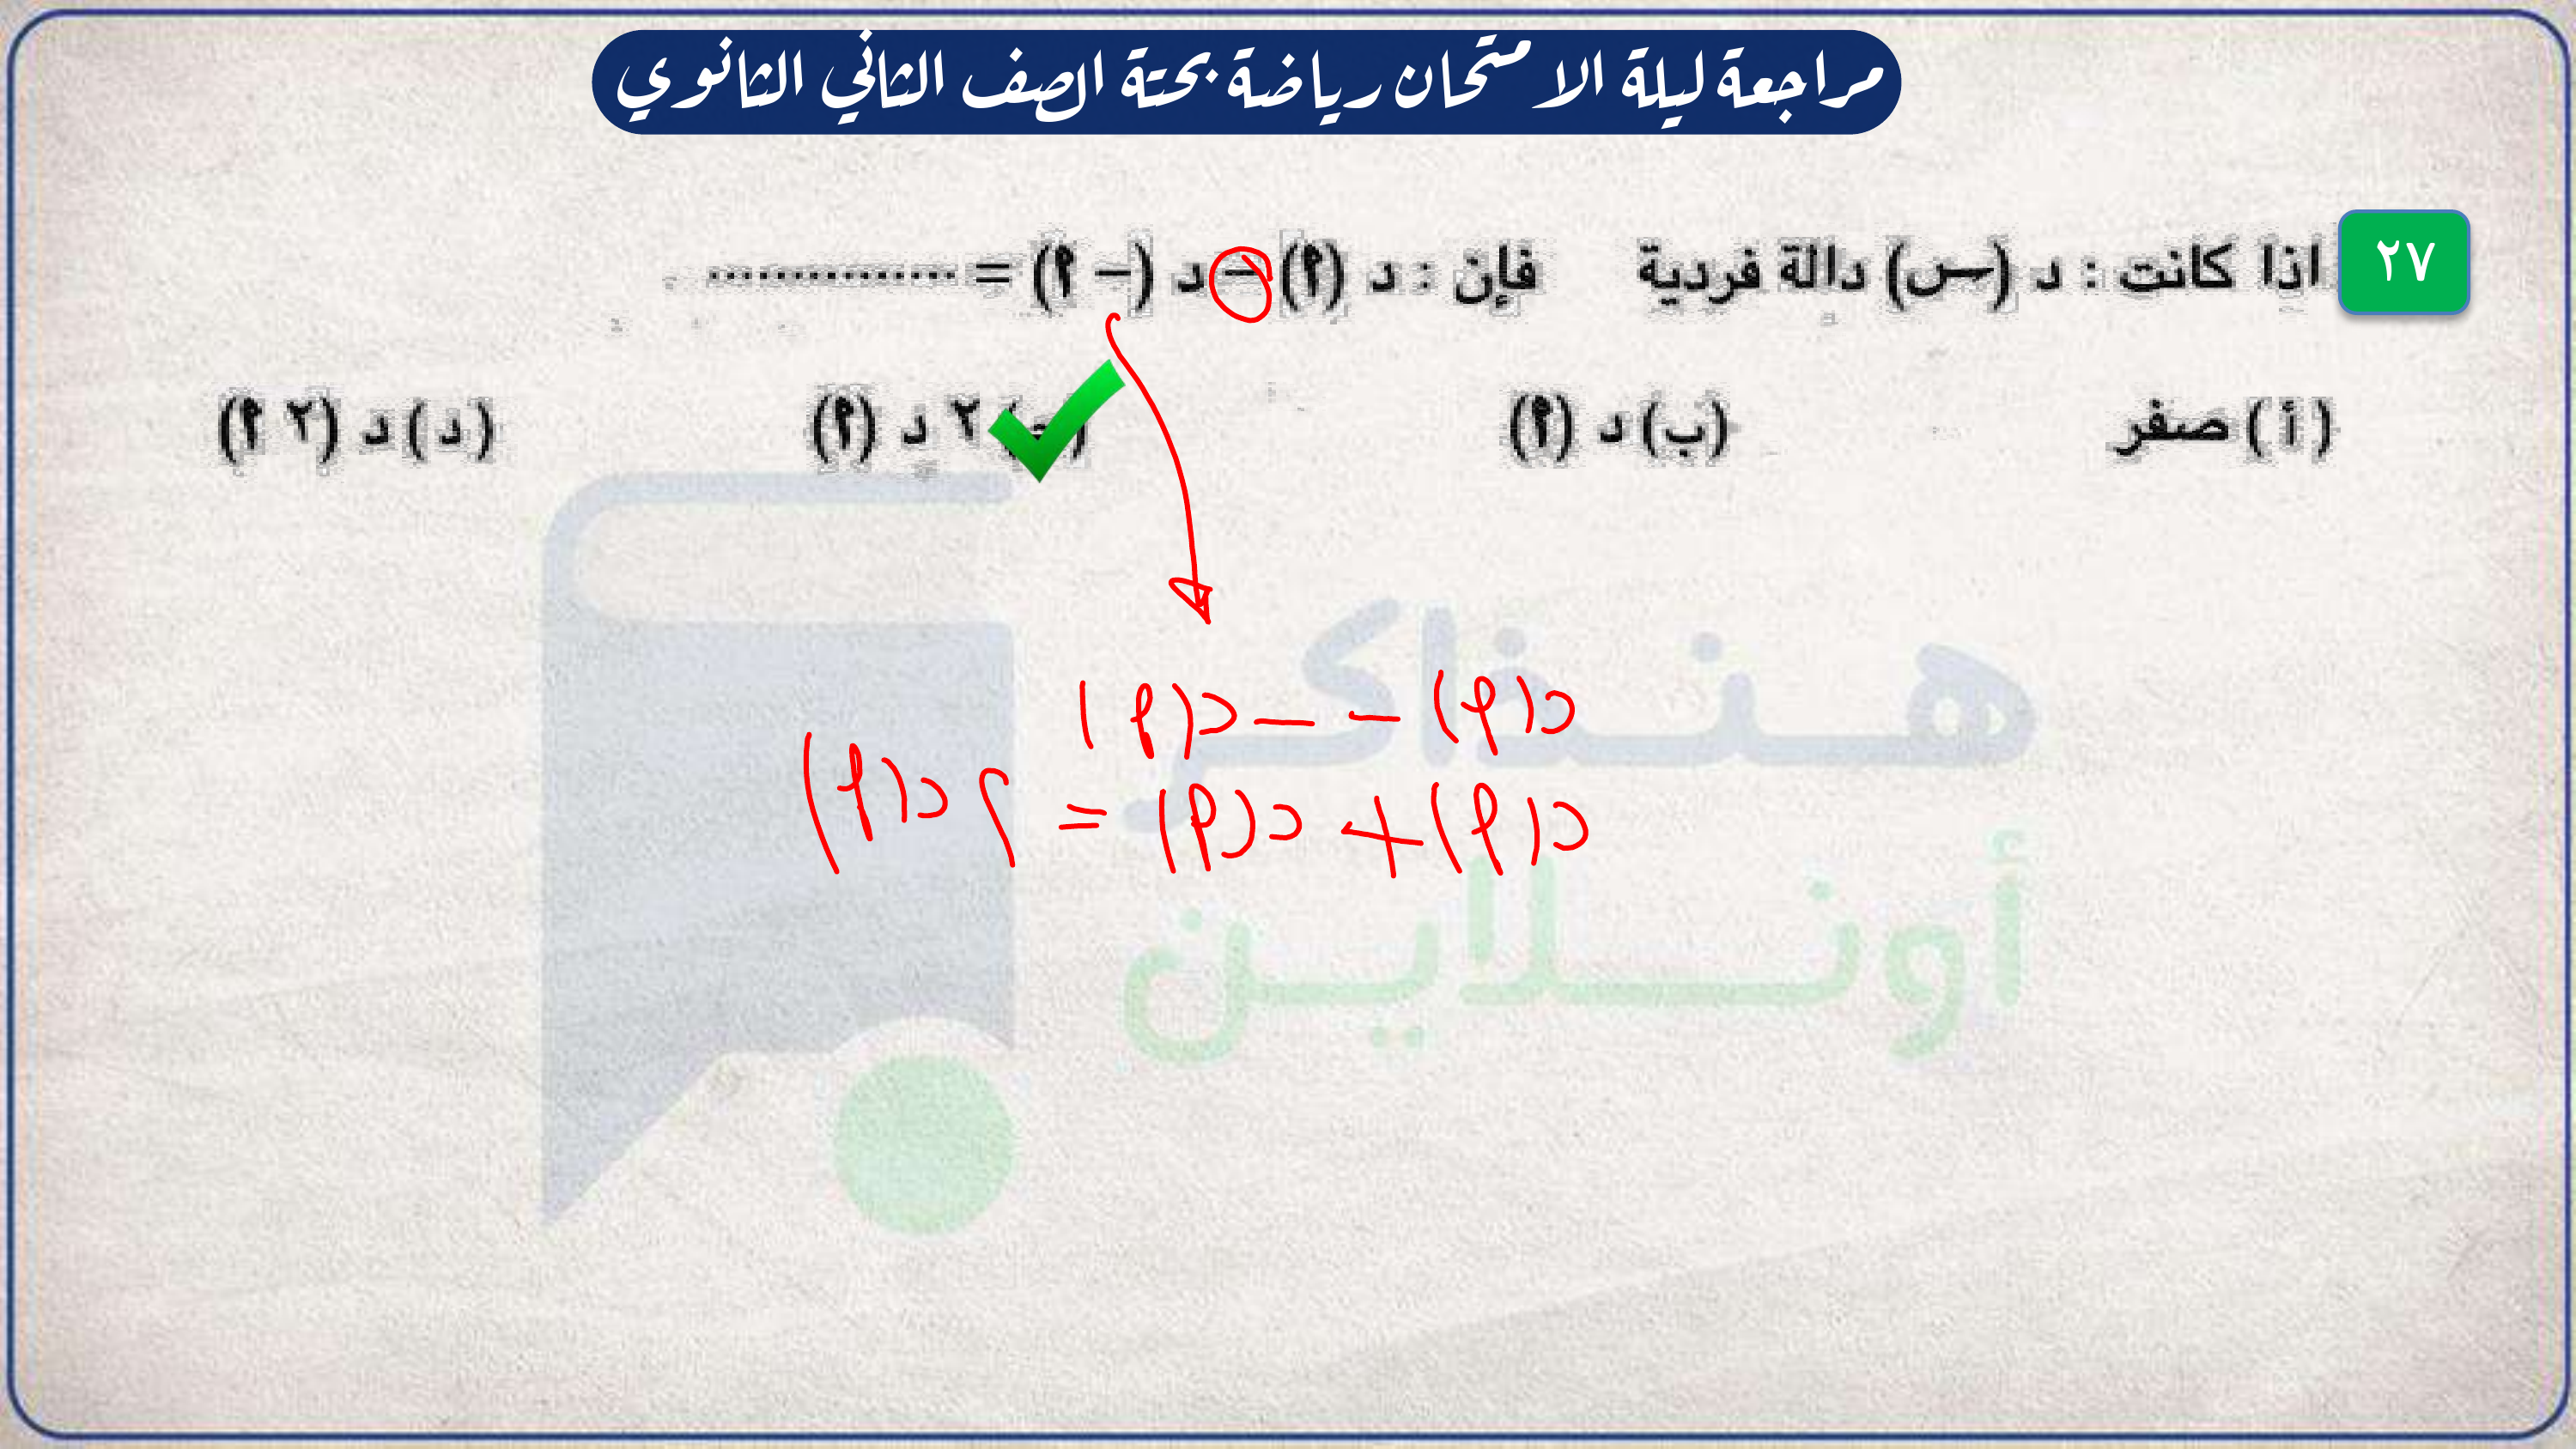 مراجعة ليلة الامتحان رياضة بحتة الصف الثاني الثانوي
٢٧ اذا كانت : د (س) دالة فردية فإن : د (٩) – د (– ٩) = ..............
( أ ) صفر (ب) د (٩) (ج) ٢ د (٩) (د) د (٢ ٩)
د(٩) – – د(٩)
د(٩) + د(٩) = ٢ د(٩)
هنذاكر
أونلاين